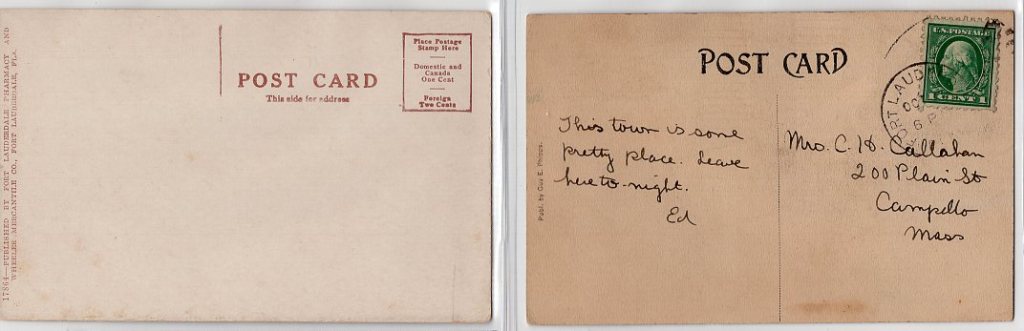 17864—PUBLISHED BY FORT LAUDERDALE PHARMACY AND
WHEELER MERCANTILE CO., FORT LAUDERDALE, FLA.
POST CARD
This side for address
Place Postage
Stamp Here
Domestic and
Canada
One Cent
Foreign
Two Cents
POST CARD
U.S. POSTAGE
1 CENT 1
FORT LAUD
OC
6 P
Publ. by Guy E. Phinos.
This town is some
pretty place. Leave
here to-night.
Ed
Mrs. C. H. Callahan
200 Plain St
Campello
Mass